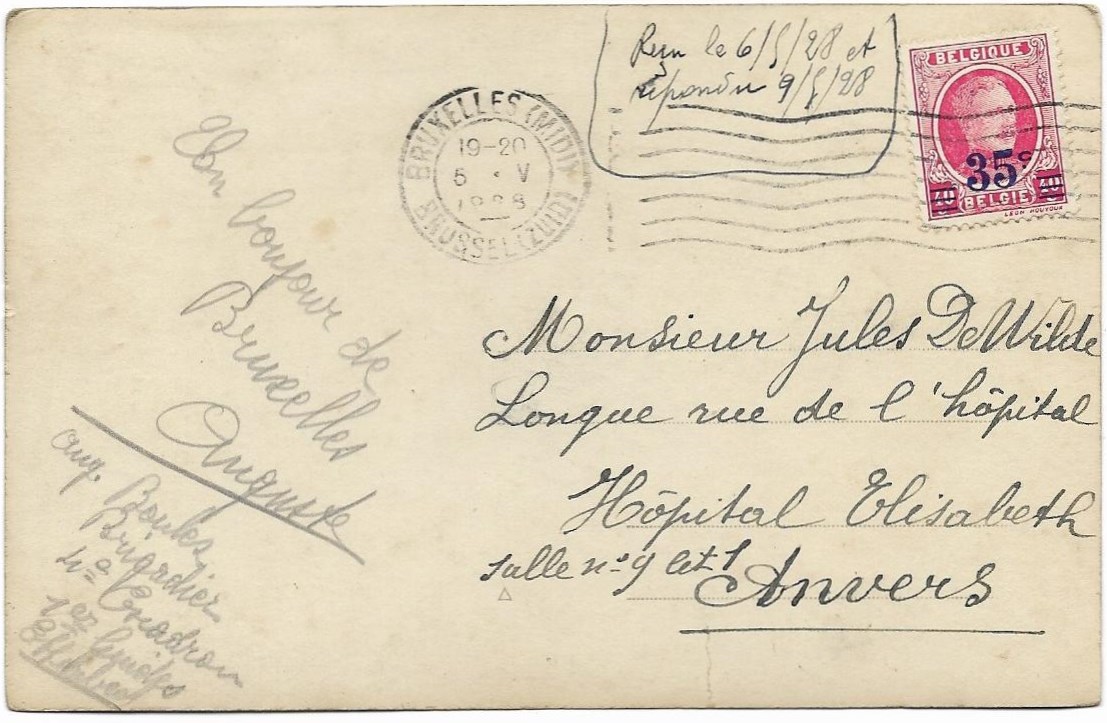 Reçu le 6/5/28 et
répondu 9/5/28
BELGIQUE
35c
40 BELGIË 40
LEON HOUYOUX
BRUXELLES (MIDI)
19-20
5 · V
1928
BRUSSEL (ZUID)
Un bonjour de
Bruxelles
Auguste
Aug.
Brigadier
4me Escadron
1er Guides
Monsieur Jules DeWilde
Longue rue de l'hôpital
Hôpital Elisabeth
salle no 9 lit 1
Anvers